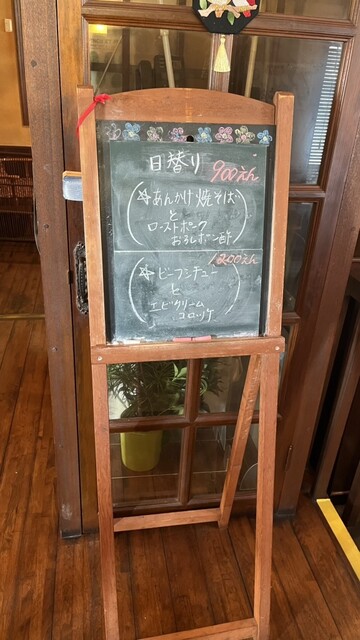 日替り 900えん
☆あんかけ焼そば
と
ローストポーク
おろしポン酢
1200えん
☆ビーフシチュー
と
エビクリーム
コロッケ